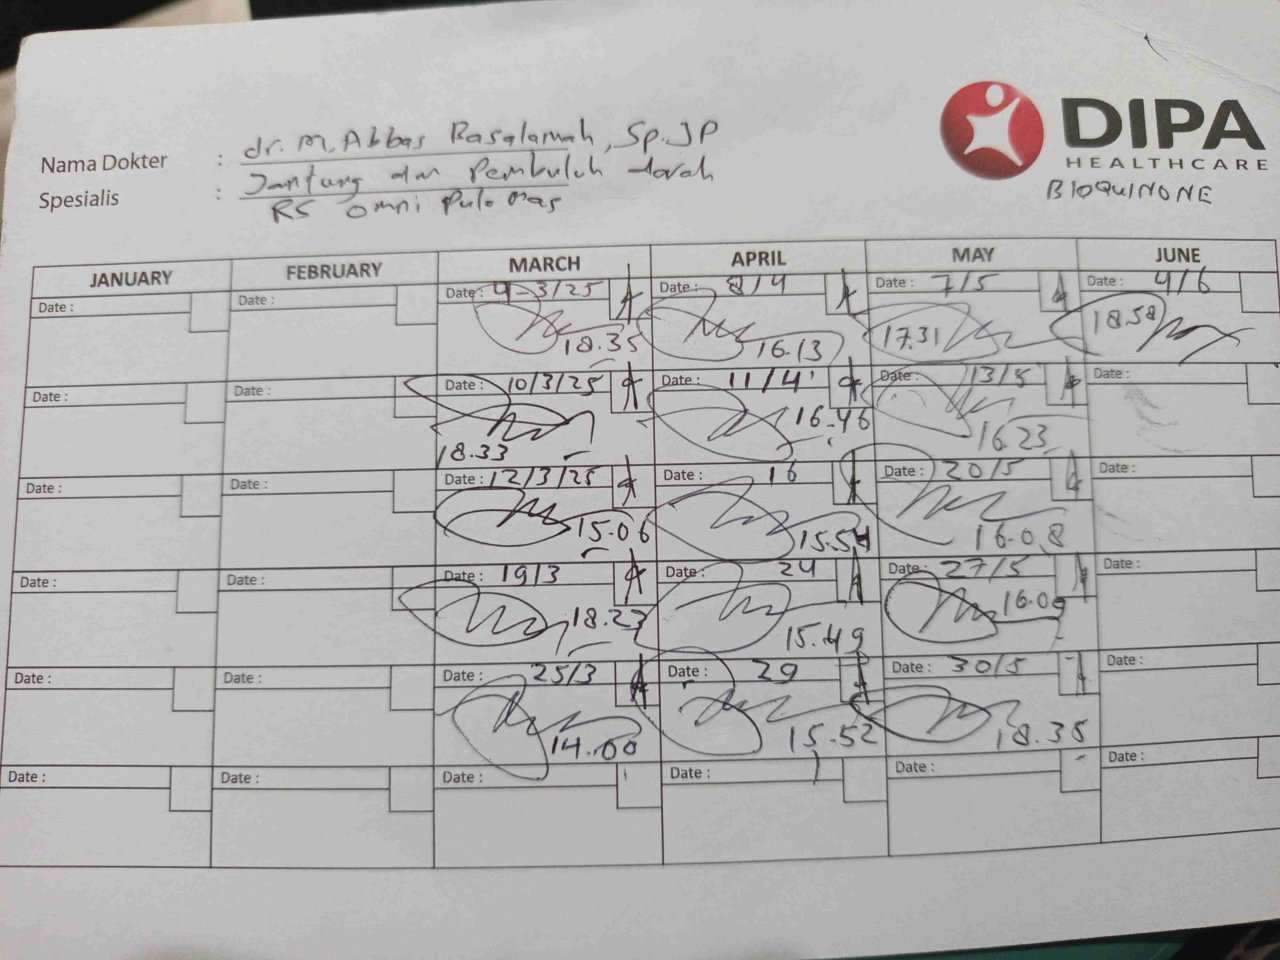 DIPA
HEALTHCARE
BIOQUINONE
Nama Dokter : dr. M. Abbas Basalamah, Sp.JP
Spesialis : Jantung dan Pembuluh darah
RS Omni Pulomas
JANUARY FEBRUARY MARCH APRIL MAY JUNE
Date : Date : Date : 4-3/25 Date : 8/4 Date : 7/5 Date : 4/6
18.35 16.13 17.31 18.58
Date : Date : Date : 10/3/25 Date : 11/4 Date : 13/5 Date :
18.33 16-46 16.23
Date : Date : Date : 12/3/25 Date : 16 Date : 20/5 Date :
15.06 15.54 16.08
Date : Date : Date : 19/3 Date : 24 Date : 27/5 Date :
18.23 15.49 16.09
Date : Date : Date : 25/3 Date : 29 Date : 30/5 Date :
14.00 15.52 18.38
Date : Date : Date : Date : Date : Date :